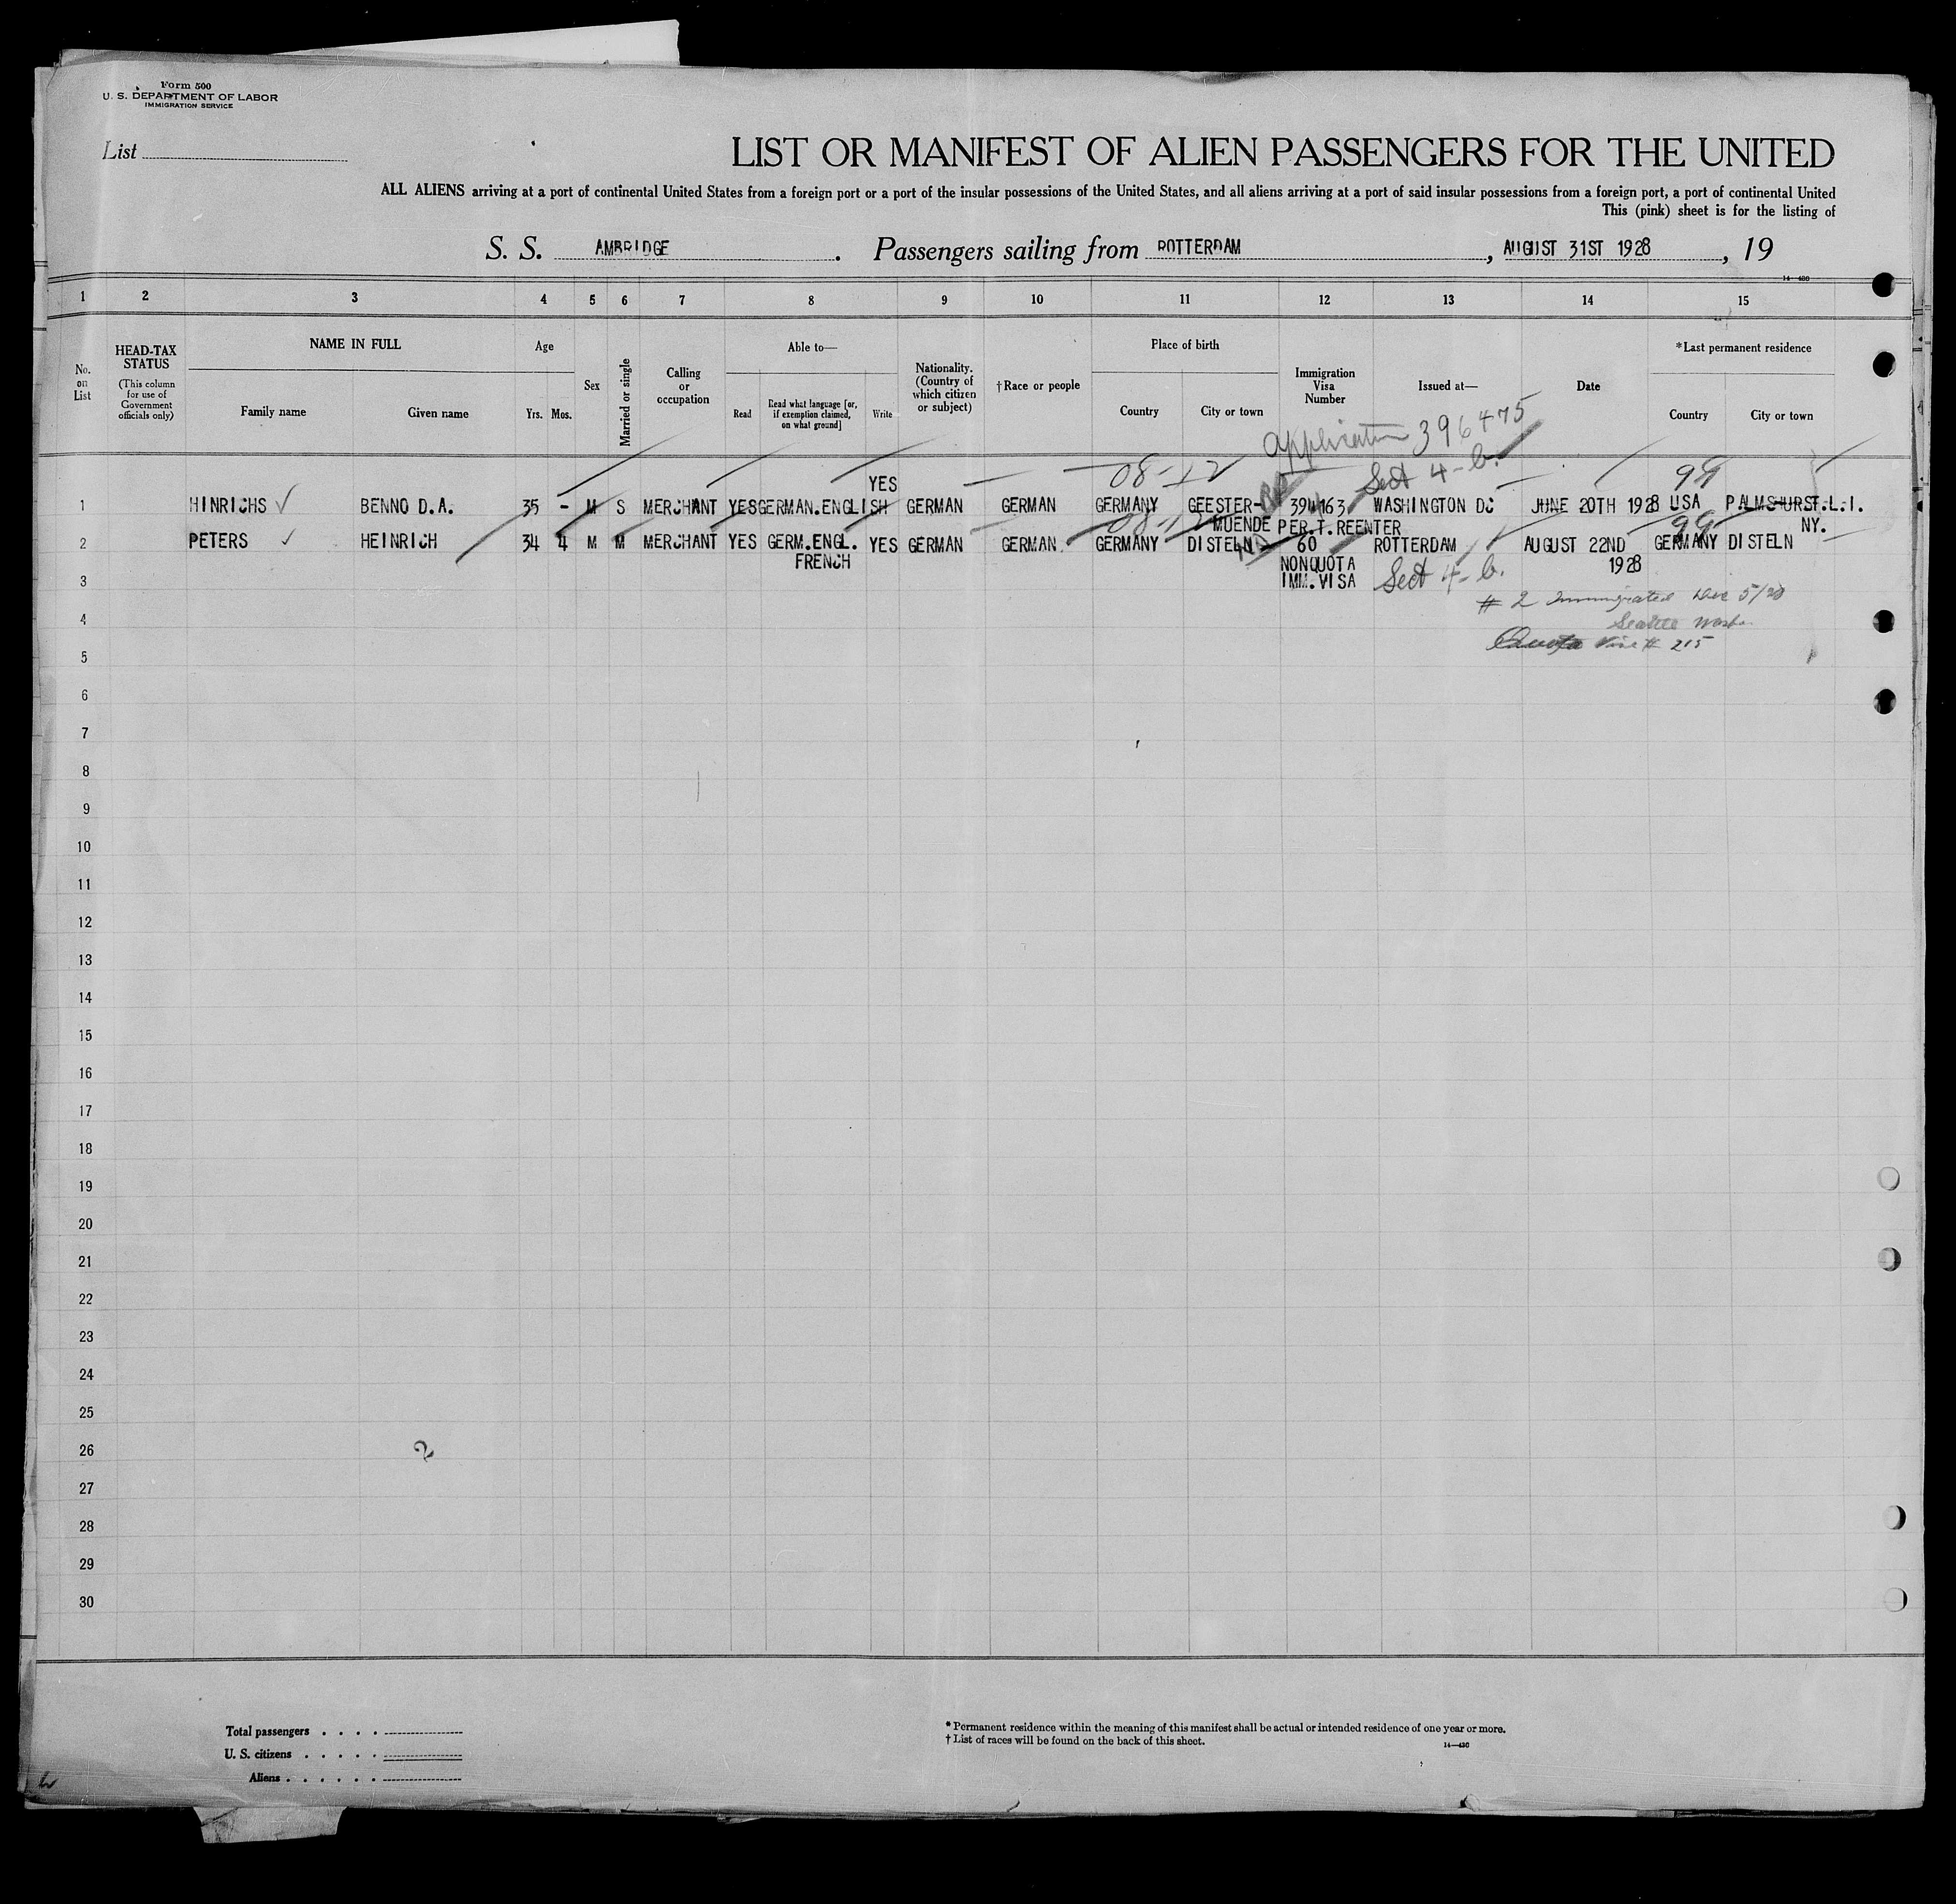 Form 500
U. S. DEPARTMENT OF LABOR
IMMIGRATION SERVICE
List
LIST OR MANIFEST OF ALIEN PASSENGERS FOR THE UNITED
ALL ALIENS arriving at a port of continental United States from a foreign port or a port of the insular possessions of the United States, and all aliens arriving at a port of said insular possessions from a foreign port, a port of continental United
This (pink) sheet is for the listing of
S. S. AMBRIDGE. Passengers sailing from ROTTERDAM, AUGUST 31ST 1928, 19
14—430
1 2 3 4 5 6 7 8 9 10 11 12 13 14 15
No. on List
HEAD-TAX STATUS
(This column for use of Government officials only)
NAME IN FULL
Family name Given name
Age
Yrs. Mos.
Sex
Married or single
Calling or occupation
Able to—
Read
Read what language [or, if exemption claimed, on what ground]
Write
Nationality. (Country of which citizen or subject)
†Race or people
Place of birth
Country City or town
Immigration Visa Number
Issued at—
Date
*Last permanent residence
Country City or town
application 396475
08-12 Sect 4-b. 99
YES
1 HINRICHS ✓ BENNO D.A. 35 - M S MERCHANT YES GERMAN.ENGLISH GERMAN GERMAN GERMANY GEESTER- 394163 WASHINGTON DC JUNE 20TH 1928 USA PALMSHURST.L.I.
08-12 MUENDE PER.T.REENTER 99 NY.
2 PETERS ✓ HEINRICH 34 4 M M MERCHANT YES GERM.ENGL. YES GERMAN GERMAN. GERMANY DISTELN 60 ROTTERDAM AUGUST 22ND GERMANY DISTELN
FRENCH NONQUOTA 1928
3 IMM.VISA Sect 4-b.
# 2 Immigrated Dec 5/23
4 Seattle Wash.
5 Quota Visa # 215
6
7
8
9
10
11
12
13
14
15
16
17
18
19
20
21
22
23
24
25
26 2
27
28
29
30
Total passengers . . . .
U. S. citizens . . . . .
Aliens . . . . . .
* Permanent residence within the meaning of this manifest shall be actual or intended residence of one year or more.
† List of races will be found on the back of this sheet.
14—430